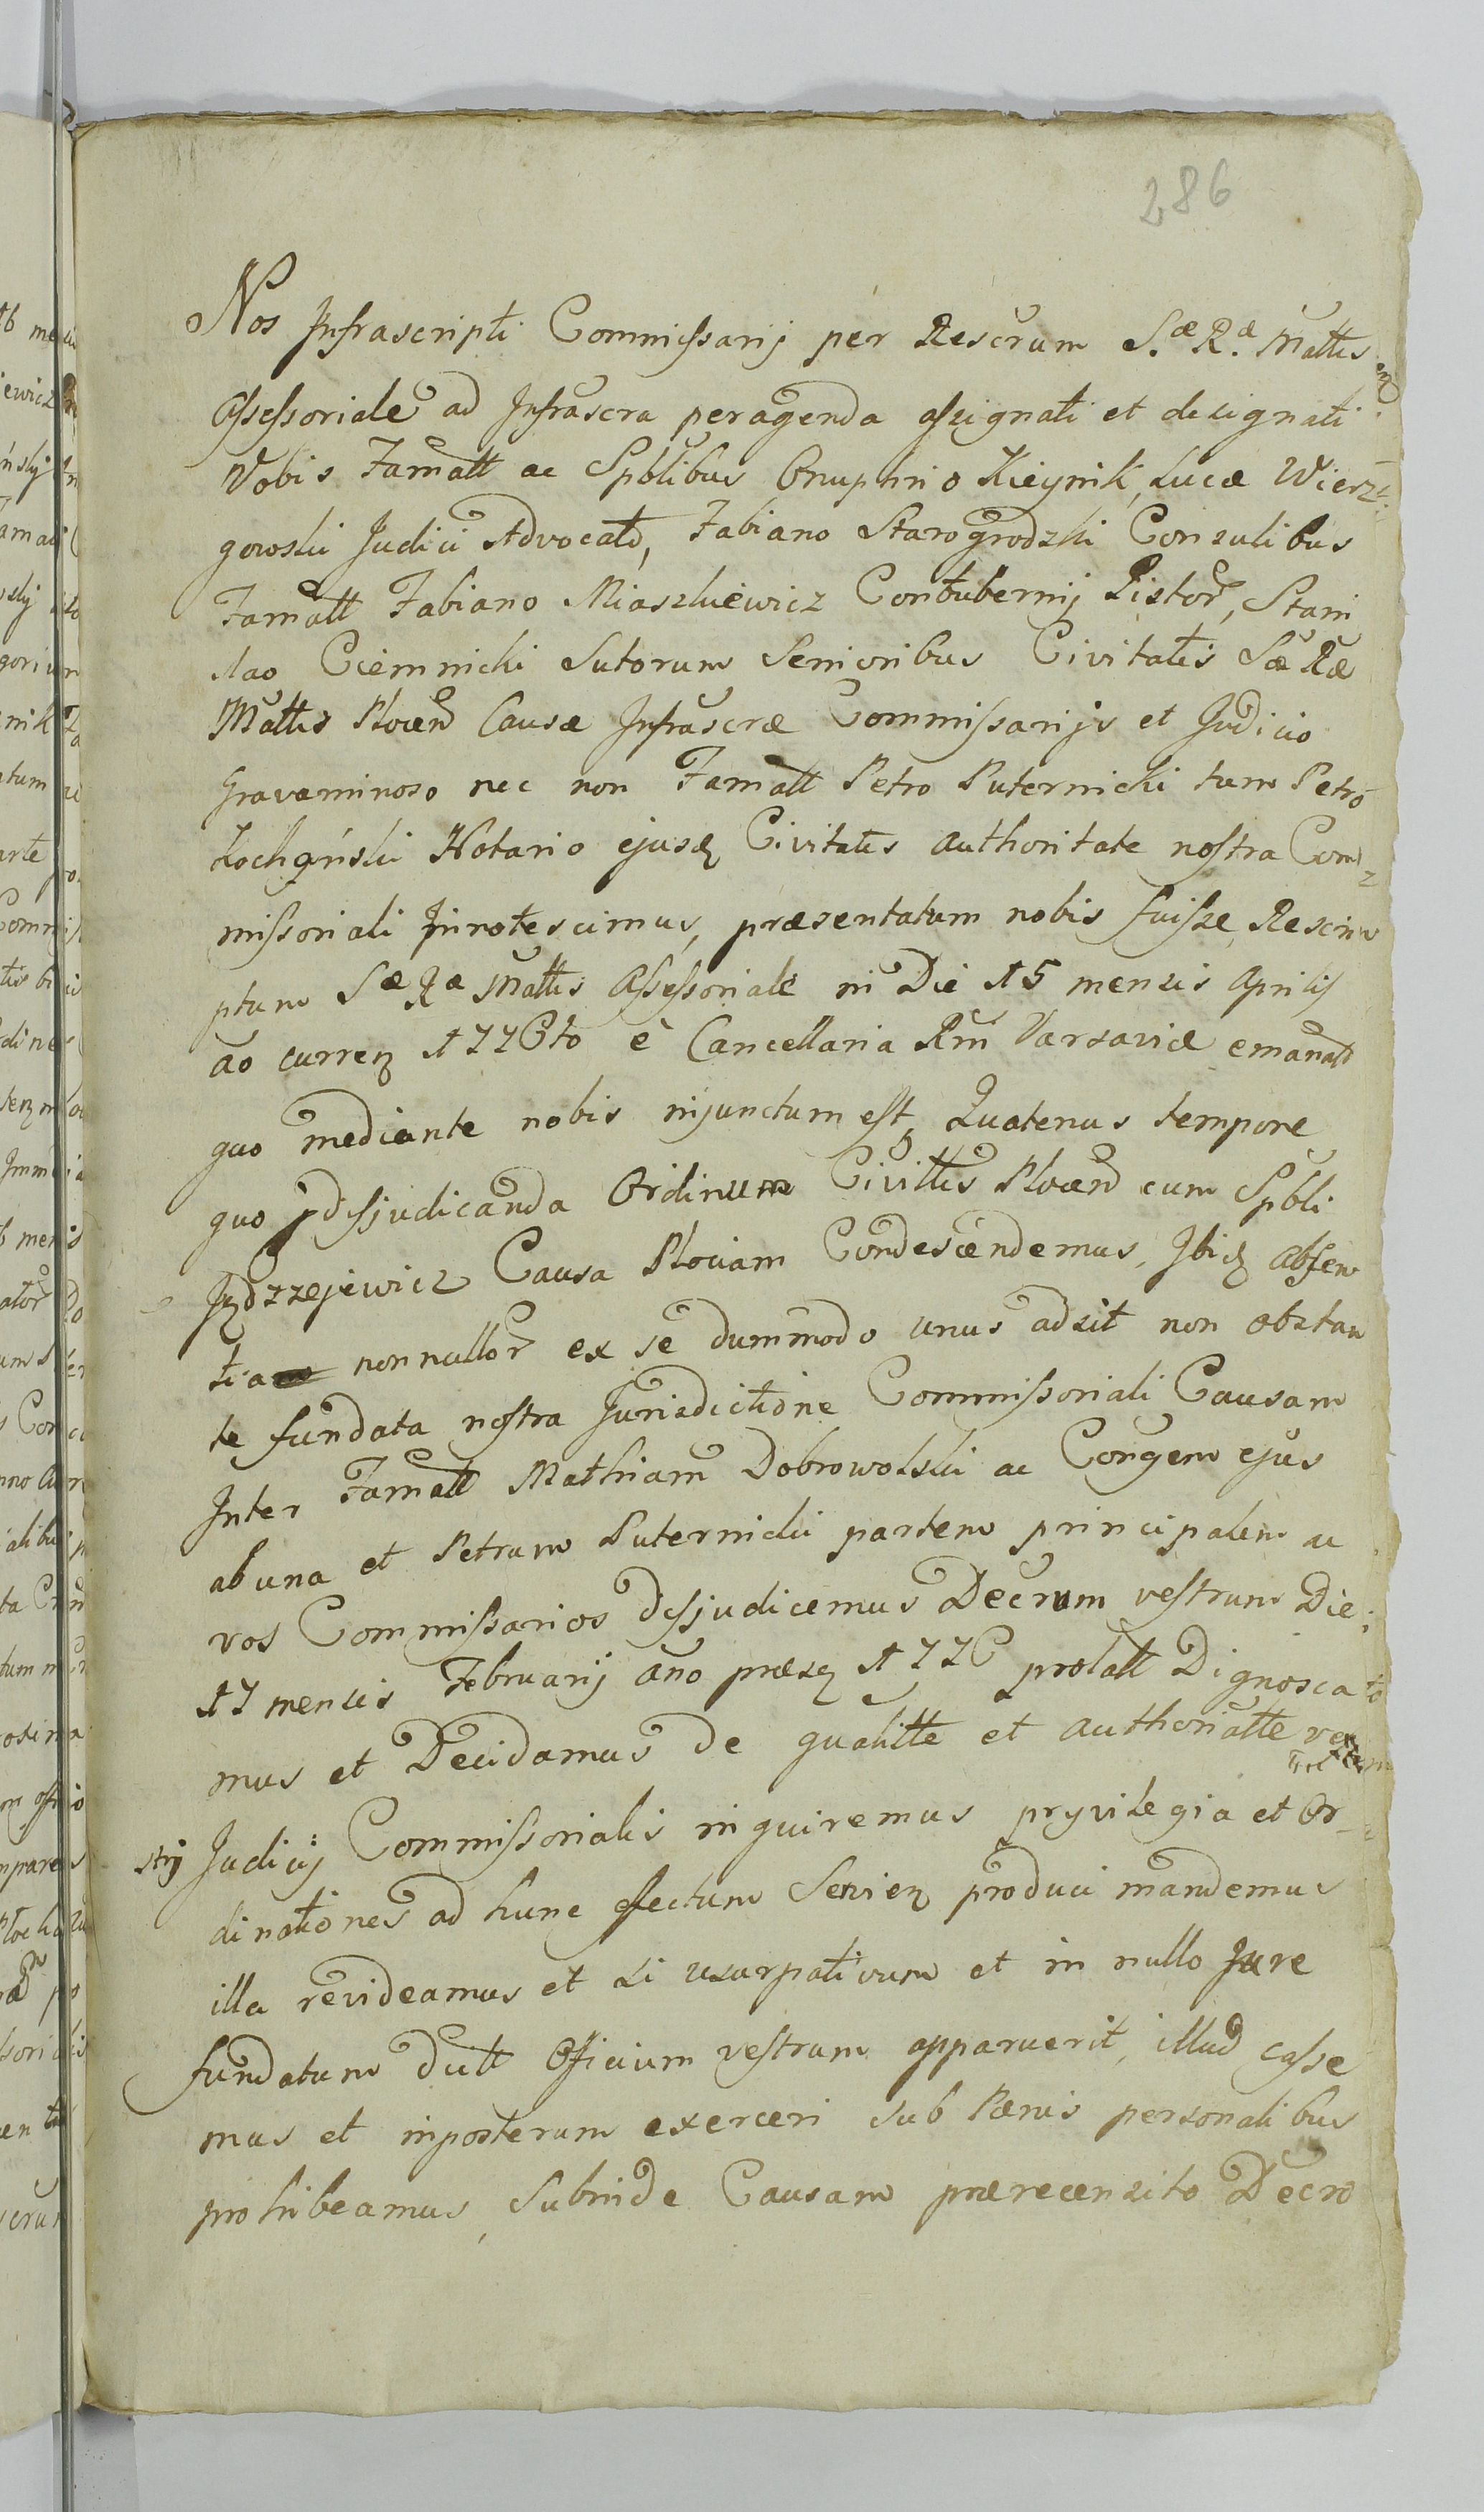 286
Nos Infrascripti Commissarij per Rescrum S.æ R.æ Mattis
Assessoriale ad Infrascra peragenda assignati et designati
Vobis Famatt ac Spblibus Onuphrio Kieynik, Lucæ Wierz-
gowski Judici Advocato, Fabiano Starogrodzki Consulibus
Famatt Fabiano Miaszkiewicz Contubernij Pistor, Stani
slao Ciemnicki Sutorum Senioribus Civitatis Sæ Ræ
Mattis Plocen Causæ Infrascræ Commissarijs et Judicio
Gravaminoso nec non Famatt Petro Puternicki tum Petro
Kochański Notario ejusq Civitatis authoritate nostra Com-
missoriali Innotescimus, præsentatum nobis fuisse Rescri
ptum Sæ Ræ Mattis Assessoriale in Die 15 mensis Aprilis
ao curren 1776to è Cancellaria Rni Varsaviæ emanat
quo mediante nobis injunctum est, Quatenus tempore
quo disjudicanda Ordinum Civittis Plocen cum Spbli
Jędrzejewicz Causa Plociam Condescendemus, Ibiq absen
tia nonnullor ex se dummodo unus adsit non obstan
te fundata nostra Jurisdictione Commissoriali Causam
Inter Famatt Mathiam Dobrowolski ac Congem ejus
ab una et Petrum Puternicki partem principalem ac
vos Commissarios disjudicemus Decrum vestrum Die
17 mensis Februarij ano præsen 1776 prolatt Dignosca
mus et Decidamus de qualitte et authoritatte
strij Judicij Commissorialis inquiremus pryvilegia et Or-
dinationes ad hunc effectum Servien produci mandemus
illa revideamus et si usurpativum et in nullo Jure
fundatum dutt Officium vestrum apparuerit, illud casse
mus et inposterum exerceri sub Pænis personalibus
prohibeamus, Subinde Causam prærecensito Decro